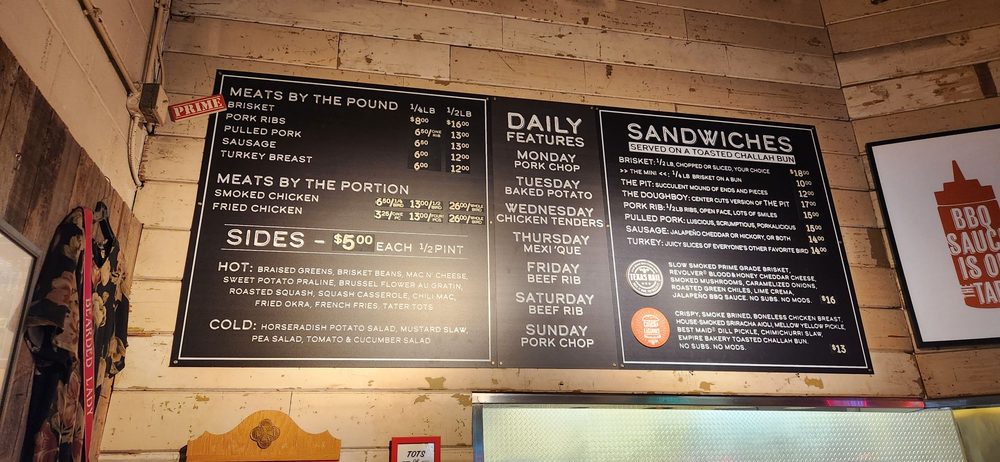 PRIME
MEATS BY THE POUND 1/4LB 1/2LB
BRISKET $8⁰⁰ $16⁰⁰
PORK RIBS 6⁵⁰/ONE RIB 13⁰⁰
PULLED PORK 6⁵⁰ 13⁰⁰
SAUSAGE 6⁰⁰ 12⁰⁰
TURKEY BREAST 6⁰⁰ 12⁰⁰
MEATS BY THE PORTION
SMOKED CHICKEN 6⁵⁰/1/4 BIRD 13⁰⁰/1/2 BIRD 26⁰⁰/WHOLE
FRIED CHICKEN 3²⁵/ONE PC 13⁰⁰/FOUR PCS 26⁰⁰/WHOLE
SIDES - $5⁰⁰ EACH 1/2 PINT
HOT: BRAISED GREENS, BRISKET BEANS, MAC N' CHEESE,
SWEET POTATO PRALINE, BRUSSEL FLOWER AU GRATIN,
ROASTED SQUASH, SQUASH CASSEROLE, CHILI MAC,
FRIED OKRA, FRENCH FRIES, TATER TOTS
COLD: HORSERADISH POTATO SALAD, MUSTARD SLAW,
PEA SALAD, TOMATO & CUCUMBER SALAD
DAILY
FEATURES
MONDAY
PORK CHOP
TUESDAY
BAKED POTATO
WEDNESDAY
CHICKEN TENDERS
THURSDAY
MEXI 'QUE
FRIDAY
BEEF RIB
SATURDAY
BEEF RIB
SUNDAY
PORK CHOP
SANDWICHES
SERVED ON A TOASTED CHALLAH BUN
BRISKET: 1/2 LB, CHOPPED OR SLICED, YOUR CHOICE $18⁰⁰
>> THE MINI <<: 1/4 LB BRISKET ON A BUN 10⁰⁰
THE PIT: SUCCULENT MOUND OF ENDS AND PIECES 12⁰⁰
THE DOUGHBOY: CENTER CUTS VERSION OF THE PIT 17⁰⁰
PORK RIB: 1/2LB RIBS, OPEN FACE, LOTS OF SMILES 15⁰⁰
PULLED PORK: LUSCIOUS, SCRUMPTIOUS, PORKALICIOUS 15⁰⁰
SAUSAGE: JALAPEÑO CHEDDAR OR HICKORY, OR BOTH 14⁰⁰
TURKEY: JUICY SLICES OF EVERYONE'S OTHER FAVORITE BIRD 14⁰⁰
SLOW SMOKED PRIME GRADE BRISKET,
REVOLVER® BLOOD & HONEY CHEDDAR CHEESE,
SMOKED MUSHROOMS, CARAMELIZED ONIONS,
ROASTED GREEN CHILES, LIME CREMA,
JALAPEÑO BBQ SAUCE. NO SUBS. NO MODS. $16
CRISPY, SMOKE BRINED, BONELESS CHICKEN BREAST,
HOUSE-SMOKED SRIRACHA AIOLI, MELLOW YELLOW PICKLE,
BEST MAID® DILL PICKLE, CHIMICHURRI SLAW,
EMPIRE BAKERY TOASTED CHALLAH BUN.
NO SUBS. NO MODS. $13
BBQ
SAUC
IS O
THE TA
BEARDED LADY
TOTS